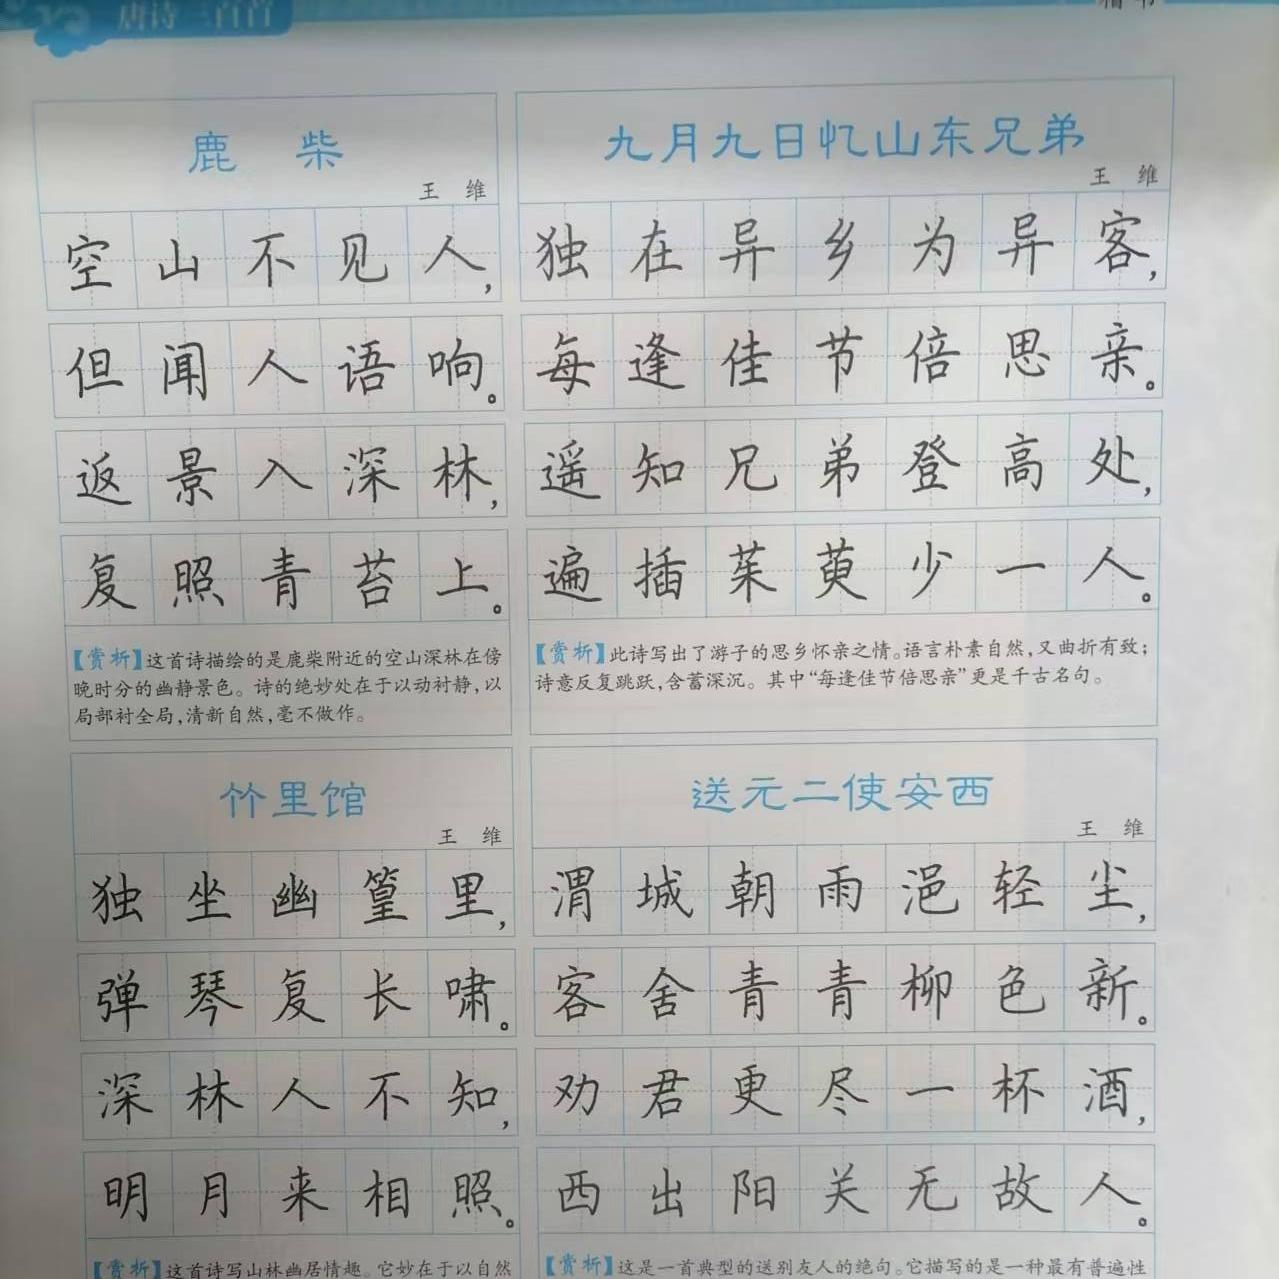 唐诗三百首
楷书
鹿柴
王维
空山不见人，
但闻人语响。
返景入深林，
复照青苔上。
【赏析】这首诗描绘的是鹿柴附近的空山深林在傍
晚时分的幽静景色。诗的绝妙处在于以动衬静，以
局部衬全局，清新自然，毫不做作。
九月九日忆山东兄弟
王维
独在异乡为异客，
每逢佳节倍思亲。
遥知兄弟登高处，
遍插茱萸少一人。
【赏析】此诗写出了游子的思乡怀亲之情。语言朴素自然，又曲折有致；
诗意反复跳跃，含蓄深沉。其中“每逢佳节倍思亲”更是千古名句。
竹里馆
王维
独坐幽篁里，
弹琴复长啸。
深林人不知，
明月来相照。
【赏析】这首诗写山林幽居情趣。它妙在于以自然
送元二使安西
王维
渭城朝雨浥轻尘，
客舍青青柳色新。
劝君更尽一杯酒，
西出阳关无故人。
【赏析】这是一首典型的送别友人的绝句。它描写的是一种最有普遍性